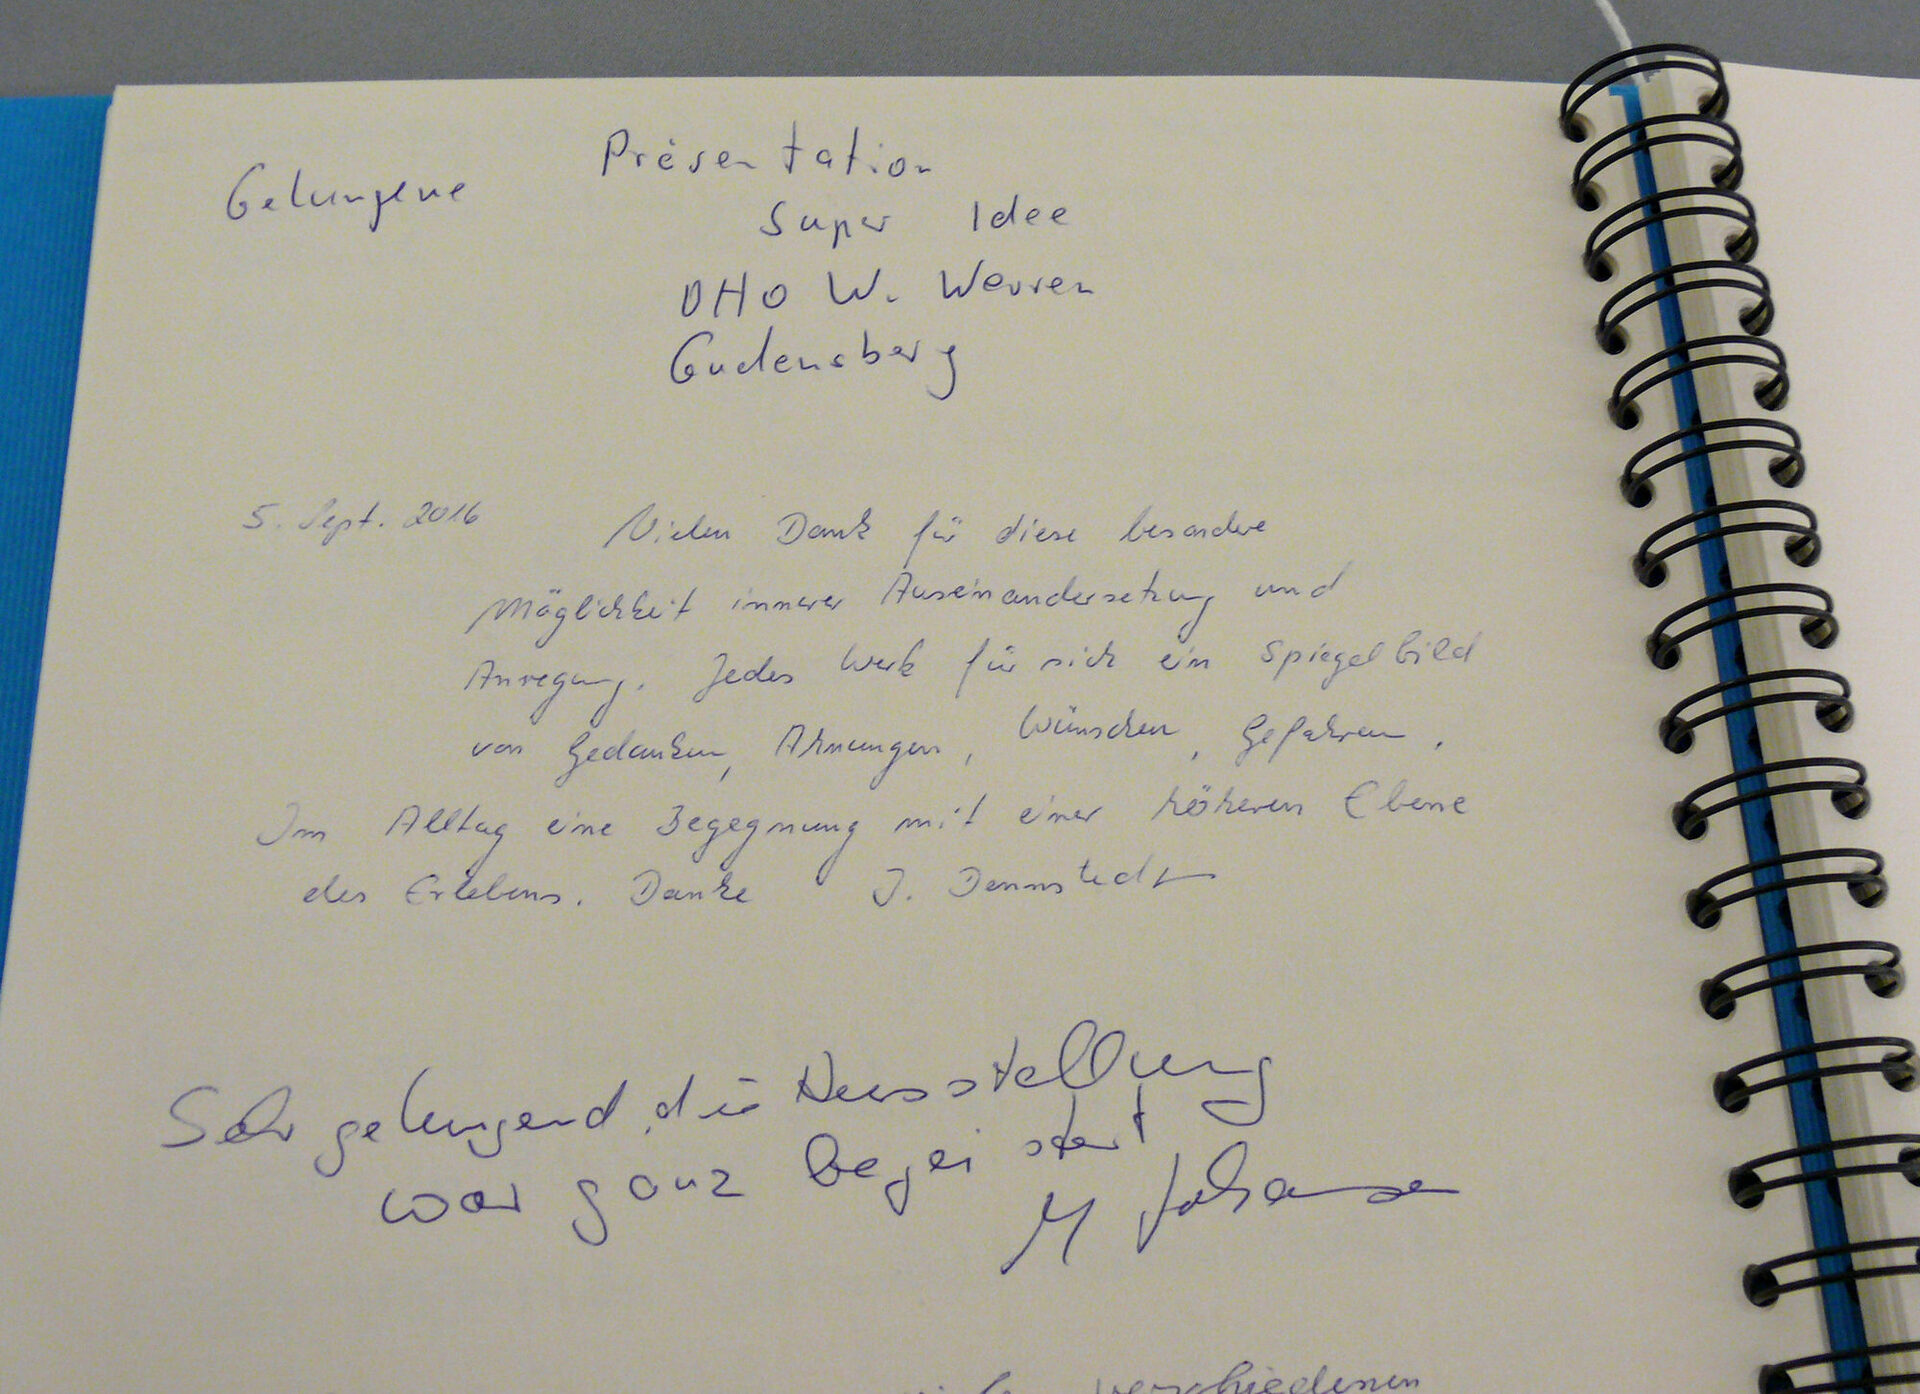 Gelungene Präsentation
Super Idee
OHO W. Werren
Gudensberg
5. Sept. 2016 Vielen Dank für diese besondere
Möglichkeit innerer Auseinandersetzung und
Anregung. Jedes Werk für sich ein Spiegelbild
von Gedanken, Ahnungen, Wünschen, Gefahren.
Im Alltag eine Begegnung mit einer höheren Ebene
des Erlebens. Danke J. Dennstedt
Sehr gelungend, die Ausstellung
war ganz begeistert
M Johansen
verschiedenen